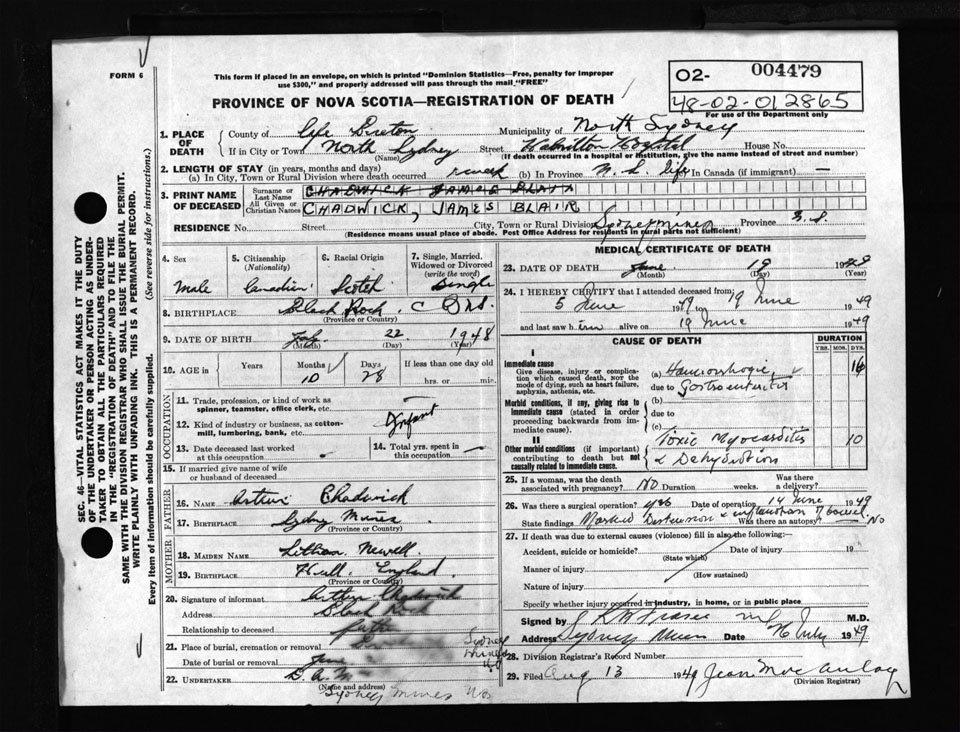 FORM 6
This form if placed in an envelope, on which is printed "Dominion Statistics—Free, penalty for improper
use $300," and properly addressed will pass through the mail "FREE"
PROVINCE OF NOVA SCOTIA—REGISTRATION OF DEATH
02- 004479
48-02-012865
For use of the Department only
1. PLACE OF DEATH
County of Cape Breton Municipality of North Sydney
If in City or Town North Sydney Street Hamilton Hospital House No.
(Name) (If death occurred in a hospital or institution, give the name instead of street and number)
2. LENGTH OF STAY (in years, months and days)
(a) In City, Town or Rural Division where death occurred (b) In Province N.S. life In Canada (if immigrant) —
3. PRINT NAME OF DECEASED
Surname or Last Name CHADWICK
All Given or Christian Names CHADWICK, JAMES BLAIR
RESIDENCE No. Street City, Town or Rural Division Sydney Mines Province N.S.
(Residents means usual place of abode. Post Office Address for residents in rural parts not sufficient)
4. Sex
Male
5. Citizenship
(Nationality)
Canadian
6. Racial Origin
Scotch
7. Single, Married,
Widowed or Divorced
(write the word)
Single
8. BIRTHPLACE Black Rock C B N.S.
(Province or Country)
9. DATE OF BIRTH 22 1948
(Month) (Day) (Year)
10. AGE in Years Months Days If less than one day old
10 28 hrs. or min.
OCCUPATION
11. Trade, profession, or kind of work as
spinner, teamster, office clerk, etc.
12. Kind of industry or business, as cotton-
mill, lumbering, bank, etc.
Infant
13. Date deceased last worked
at this occupation
14. Total yrs. spent in
this occupation
15. If married give name of wife
or husband of deceased
FATHER
16. NAME Arthur Chadwick
17. BIRTHPLACE Sydney Mines
(Province or Country)
MOTHER
18. MAIDEN NAME Lillian Newell
19. BIRTHPLACE Hull England
(Province or Country)
20. Signature of informant Arthur Chadwick
Address Black Rock
Relationship to deceased father
21. Place of burial, cremation or removal Sydney Mines
Date of burial or removal June
22. UNDERTAKER D. A. M
(Name and address)
Sydney Mines N.S.
MEDICAL CERTIFICATE OF DEATH
23. DATE OF DEATH June 19 1949
(Month) (Day) (Year)
24. I HEREBY CERTIFY that I attended deceased from:
5 June 1949 to 19 June 1949
and last saw him alive on 19 June 1949
CAUSE OF DEATH
DURATION
YRS. MOS. DYS.
I
Immediate cause
Give disease, injury or complica-
tion which caused death, NOT the
mode of dying, such as heart failure,
asphyxia, asthenia, etc.
(a) Haemorrhagic
due to Gastroenteritis
Morbid conditions, if any, giving rise to
immediate cause (stated in order
proceeding backwards from im-
mediate cause).
(b)
due to
(c)
II
Other morbid conditions (if important)
contributing to death but not
causally related to immediate cause.
Toxic Myocarditis 10
& Dehydration
25. If a woman, was the death
associated with pregnancy? NO Duration weeks. Was there
a delivery?
26. Was there a surgical operation? yes Date of operation 14 June 1949
State findings Marked Distension & inflammation of bowel. Was there an autopsy? No
27. If death was due to external causes (violence) fill in also the following:—
Accident, suicide or homicide? Date of injury 19
(State which)
Manner of injury
(How sustained)
Nature of injury
Specify whether injury occurred in industry, in home, or in public place
Signed by M.D.
Address Sydney Mines Date 26 July 1949
28. Division Registrar's Record Number
29. Filed Aug 13 1949 Jean MacAulay
(Division Registrar)
SEC. 46—VITAL STATISTICS ACT MAKES IT THE DUTY
OF THE UNDERTAKER OR PERSON ACTING AS UNDER-
TAKER TO OBTAIN ALL THE PARTICULARS REQUIRED
IN THE "REGISTRATION OF DEATH" AND TO FILE THE
SAME WITH THE DIVISION REGISTRAR WHO SHALL ISSUE THE BURIAL PERMIT.
WRITE PLAINLY WITH UNFADING INK. THIS IS A PERMANENT RECORD.
Every item of information should be carefully supplied. (See reverse side for instructions.)